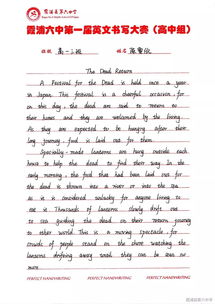 霞浦六中第一届英文书写大赛（高中组）
班级 高一3班 姓名
The Dead Return
A Festival for the Dead is held once a year
in Japan. This festival is a cheerful occasion, for
on this day, the dead are said to return to
their homes and they are welcomed by the living.
As they are expected to be hungry after their
long journey, food is laid out for them.
Specially-made lanterns are hung outside each
house to help the dead to find their way. In the
early morning, the food that had been laid out for
the dead is thrown into a river or into the sea
as it is considered unlucky for anyone living to
eat it. Thousands of lanterns slowly drift out
to sea guiding the dead on their return journey
to other world. This is a moving spectacle for
crowds of people stand on the shore watching the
lanterns drifting away until they can be seen no
more.
PERFECT HANDWRITING PERFECT HANDWRITING PERFECT HANDWRITING